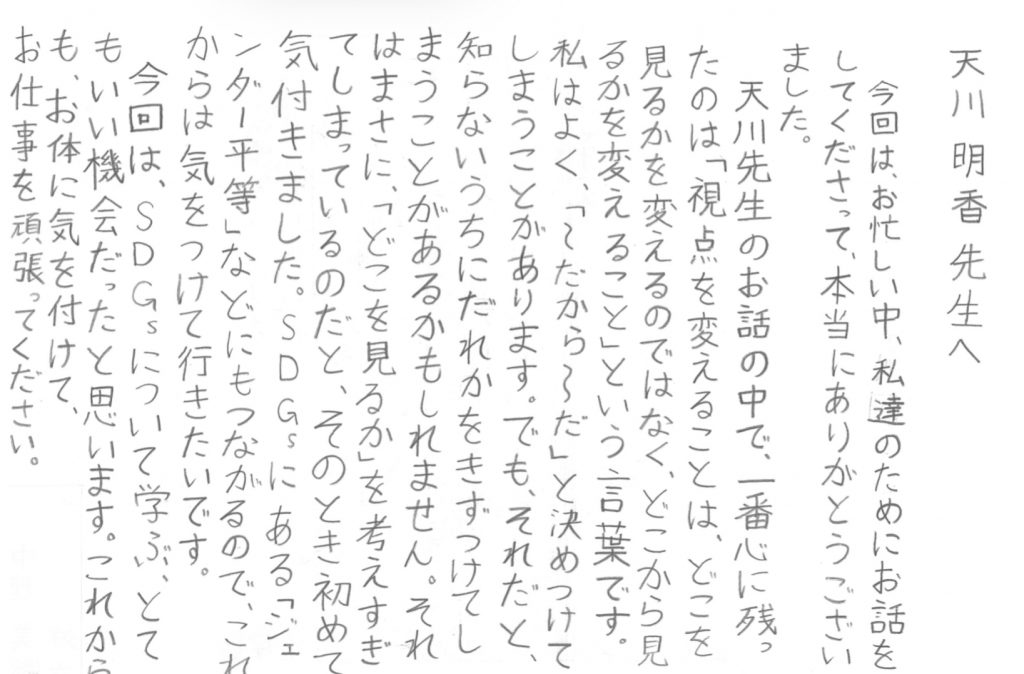 天川 明香 先生へ
今回は、お忙しい中、私達のためにお話を
してくださって、本当にありがとうござい
ました。
天川先生のお話の中で、一番心に残っ
たのは「視点を変えることは、どこを
見るかを変えるのではなく、どこから見
るかを変えること」という言葉です。
私はよく、「～だから～だ」と決めつけて
しまうことがあります。でも、それだと、
知らないうちにだれかをきずつけてし
まうことがあるかもしれません。それ
はまさに、「どこを見るか」を考えすぎ
てしまっているのだと、そのとき初めて
気付きました。SDGsにある「ジェ
ンダー平等」などにもつながるので、これ
からは気をつけて行きたいです。
今回は、SDGsについて学ぶ、とて
もいい機会だったと思います。これから
も、お体に気を付けて、
お仕事を頑張ってください。